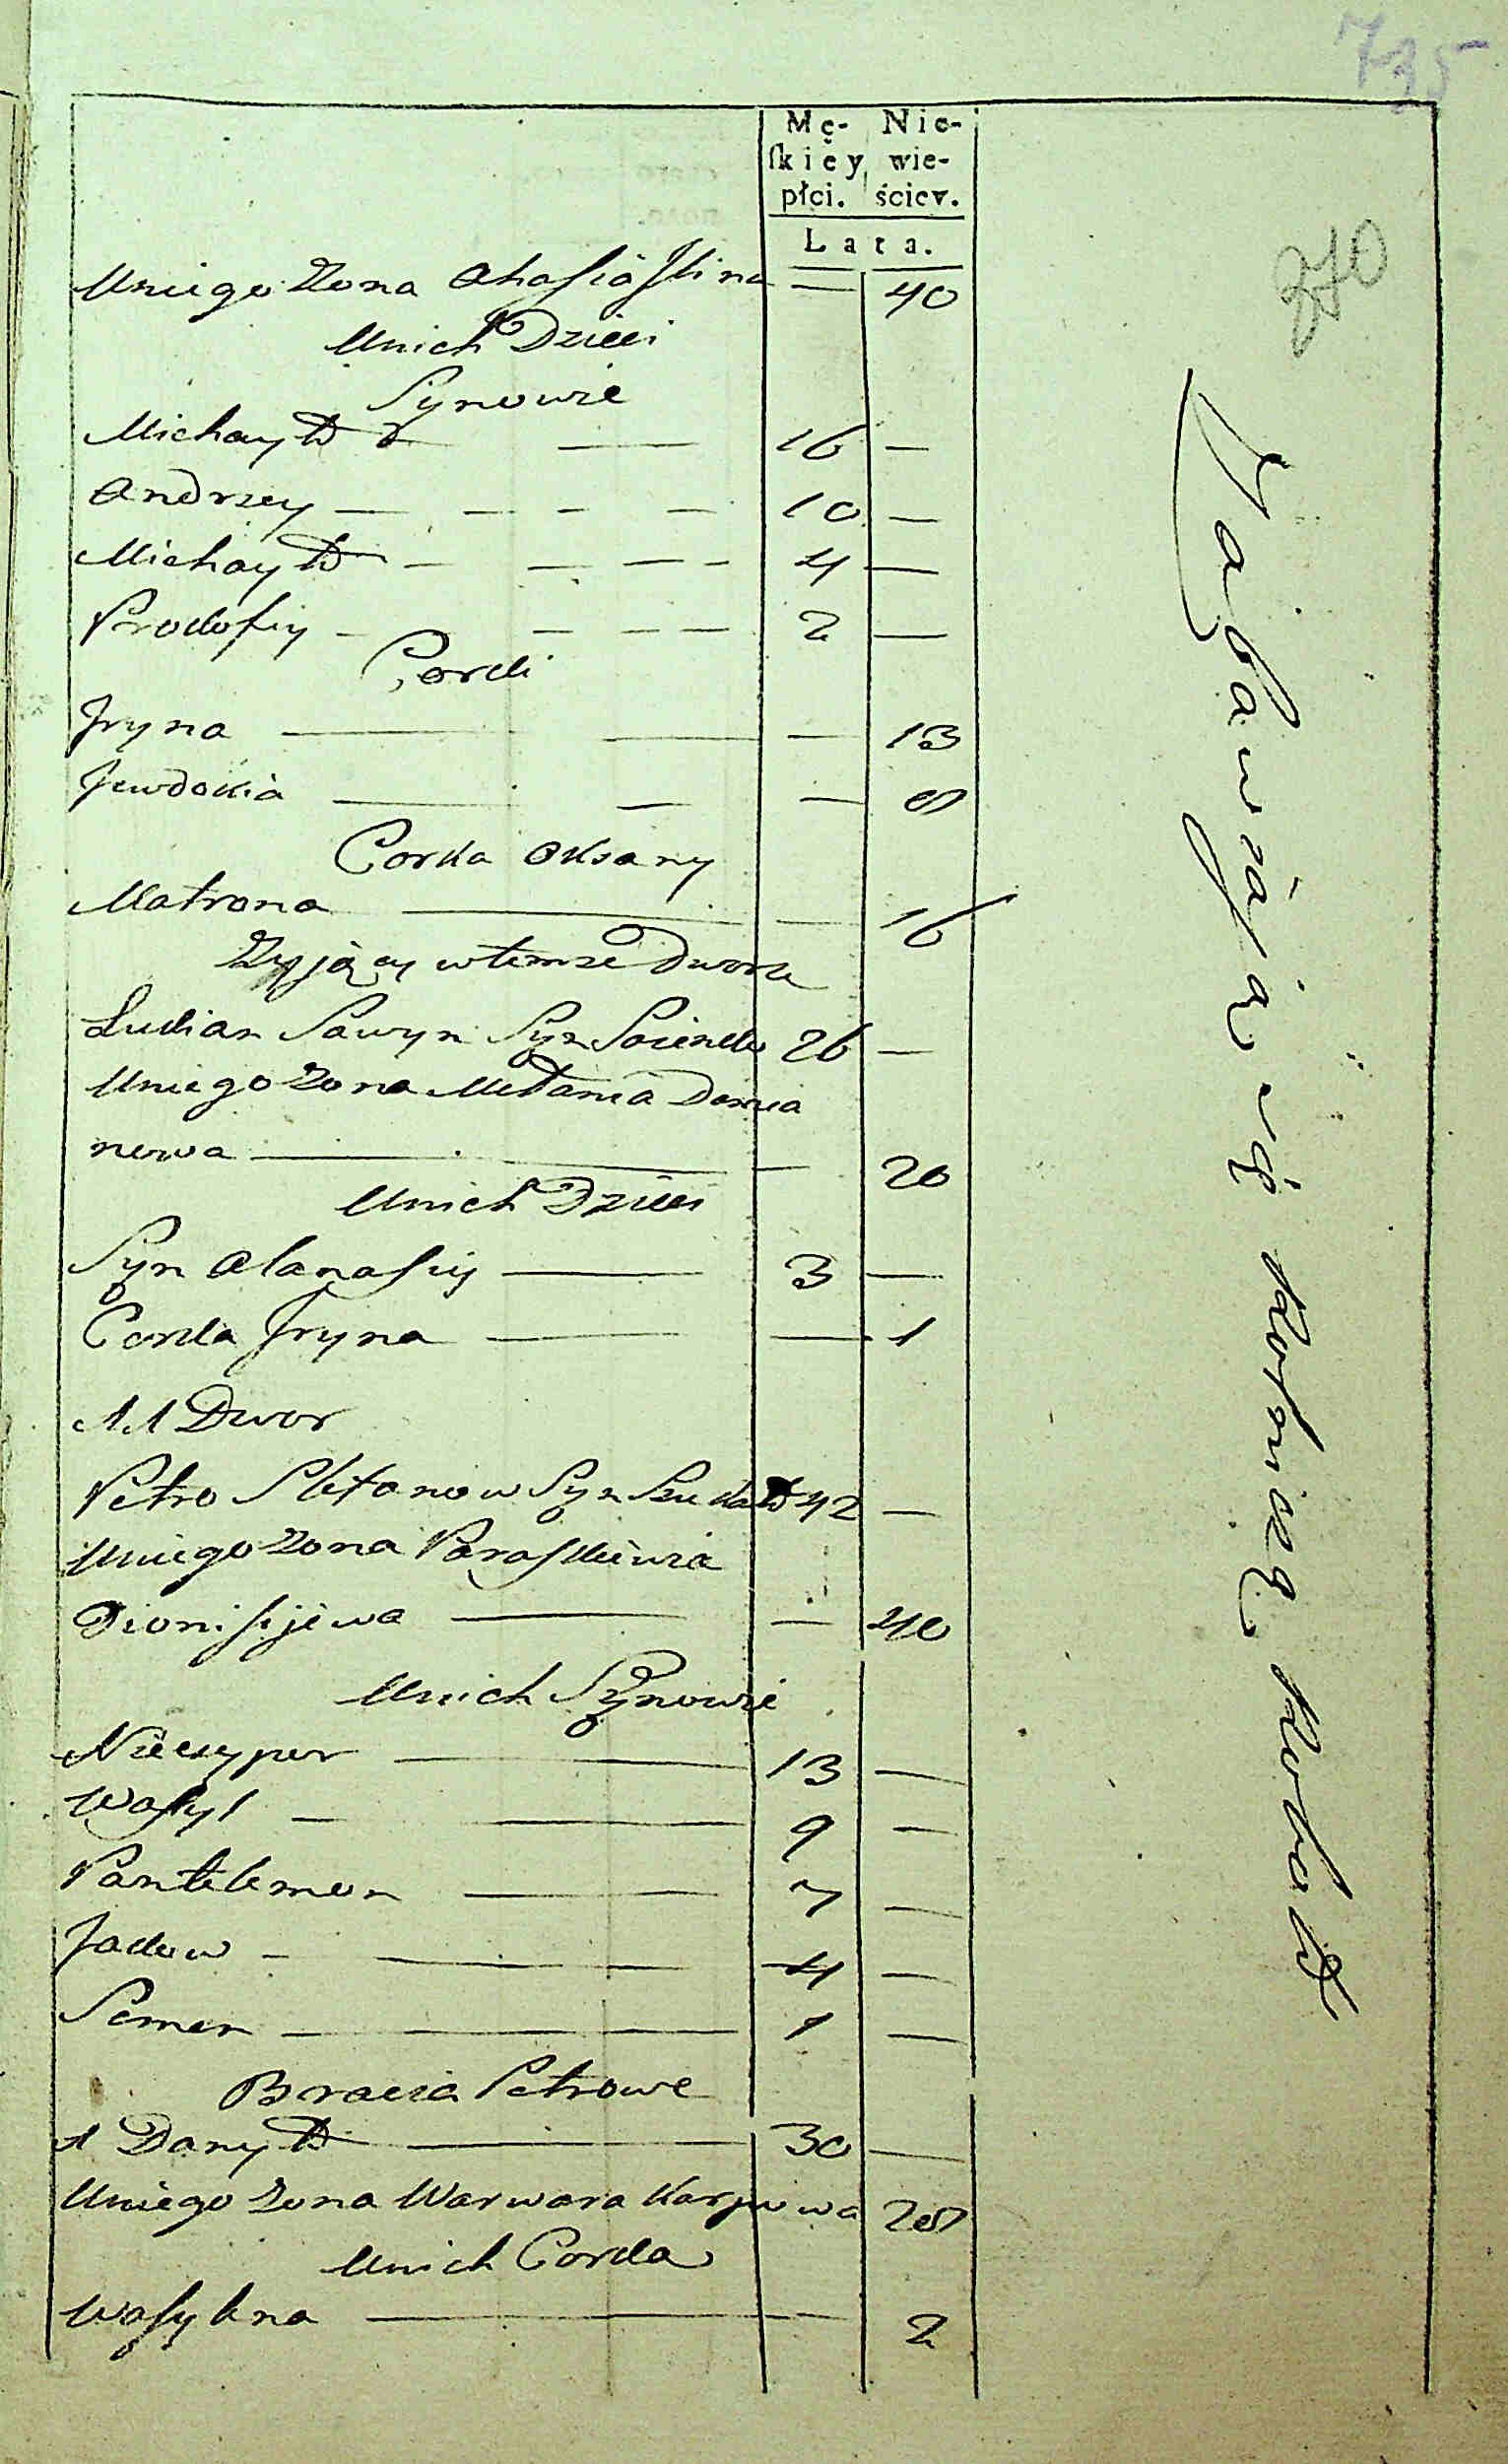 735
Mę- Nie-
skiey wie-
płci. ściey.
Lata.
270
Uniego Zona Ahafia Jlina — 40
Unich Dzieci
Synowie
Michayło 16 —
Andrzey — 10 —
Michayło — 4 —
Prokofiy — 2 —
Corki
Jryna — 13
Jewdokia — 8
Corka Oksany
Matrona — 16
Zyjący wtemze Dworze
Lukian Sawyn Syn 26 —
Uniego Zona Mełania Demia
nowa — 20
Unich Dzieci
Syn Atanasiy — 3 —
Corka Jryna — 1
11 Dwor
Petro Stefanow Syn 42 —
Uniego Zona Paraskiewia
Dionisijewa — 40
Unich Synowie
Niczypor — 13 —
Wasyl — 9 —
Pantelemon — 7 —
Jakow — 4 —
Semen — 1 —
Bracia Petrowe
1 Danyło — 30 —
Uniego Zona Warwara Karpowa 28
Unich Corka
Wasylina — 2
Zabawiaią się Rolniczą Robotą